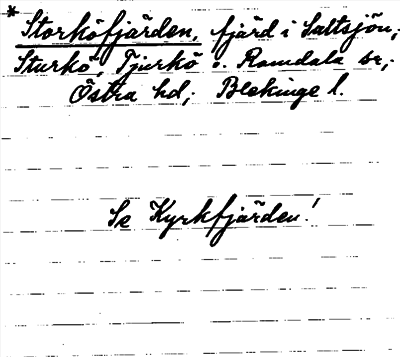 * Storköfjärden, fjärd i Saltsjön;
Sturkö, Tjurkö o. Ramdala sr;
Östra hd; Blekinge l.
Se Kyrkfjärden!